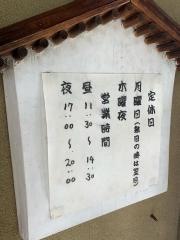 定休日
月曜日(祭日の時は翌日)
水曜夜
営業時間
昼 11:30〜14:30
夜 17:00〜20:00